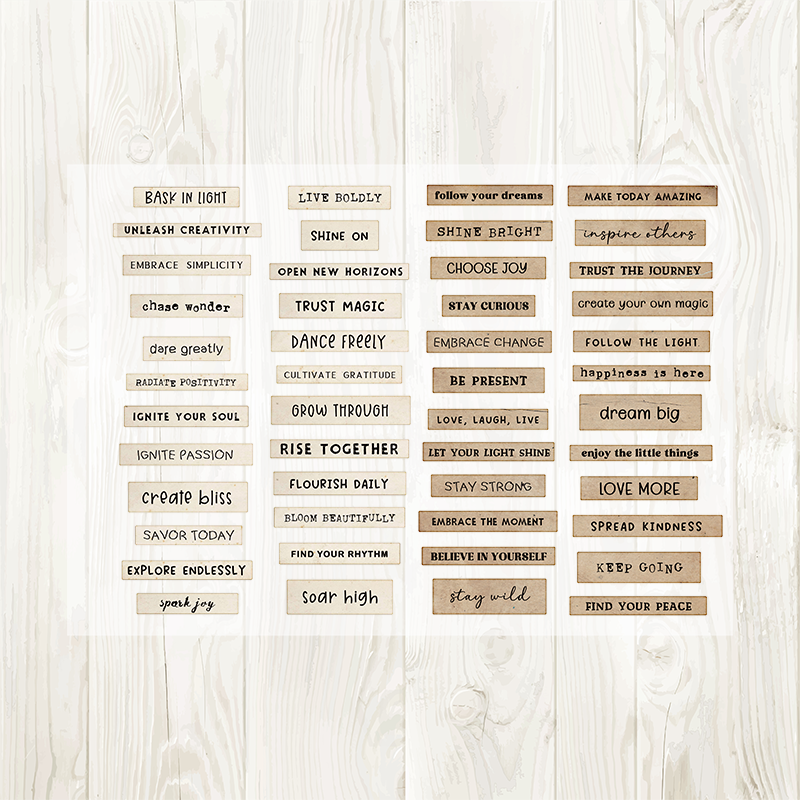 BASK IN LIGHT
UNLEASH CREATIVITY
EMBRACE SIMPLICITY
chase wonder
dare greatly
RADIATE POSITIVITY
IGNITE YOUR SOUL
IGNITE PASSION
create bliss
SAVOR TODAY
EXPLORE ENDLESSLY
spark joy
LIVE BOLDLY
SHINE ON
OPEN NEW HORIZONS
TRUST MAGIC
DANCE FREELY
CULTIVATE GRATITUDE
GROW THROUGH
RISE TOGETHER
FLOURISH DAILY
BLOOM BEAUTIFULLY
FIND YOUR RHYTHM
soar high
follow your dreams
SHINE BRIGHT
CHOOSE JOY
STAY CURIOUS
EMBRACE CHANGE
BE PRESENT
LOVE, LAUGH, LIVE
LET YOUR LIGHT SHINE
STAY STRONG
EMBRACE THE MOMENT
BELIEVE IN YOURSELF
stay wild
MAKE TODAY AMAZING
inspire others
TRUST THE JOURNEY
create your own magic
FOLLOW THE LIGHT
happiness is here
dream big
enjoy the little things
LOVE MORE
SPREAD KINDNESS
KEEP GOING
FIND YOUR PEACE